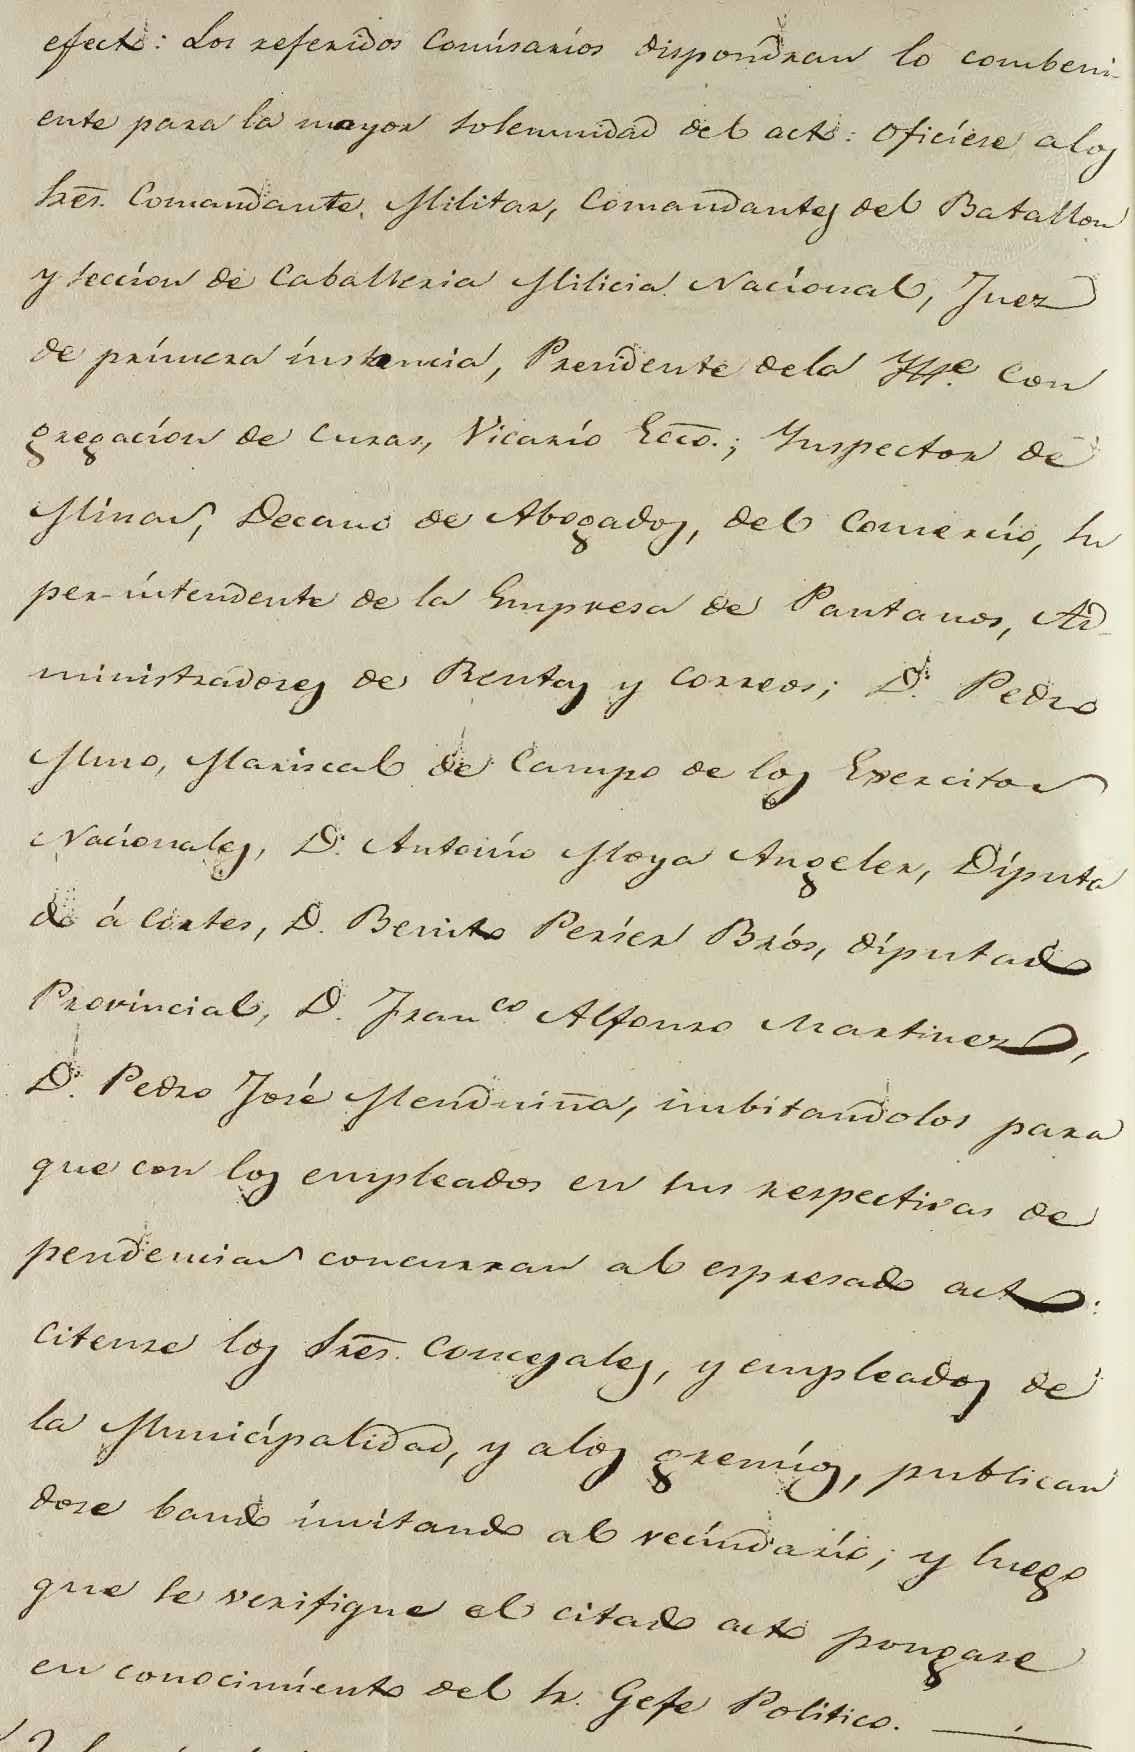 efecto: Los referidos Comisarios dispondran lo combeni-
ente para la mayor solemnidad del acto: oficiese a los
Sres. Comandante Militar, Comandantes del Batallon
y seccion de Caballeria Milicia Nacional, Juez
de primera instancia, Presidente dela Ylle. Con
gregacion de Curas, Vicario Ecco.; Ynspector de
Minas, Decano de Abogados, del Comercio, Su
per-intendente de la Empresa de Pantanos, Ad-
ministradores de Rentas y Correos; D. Pedro
Muro, Mariscal de Campo de los Exercitos
Nacionales, D. Antonio Moya Angeler, Diputa
do á Cortes, D. Benito Perier Brós, diputado
Provincial, D. Franco Alfonso Martinez,
D. Pedro José Menduiña, imbitandolos para
que con los empleados en sus respectivas de
pendencias concurran al espresado acto:
citense los Sres. Concejales, y empleados de
la Municipalidad, y a los gremios, publican
dose bando invitando al vecindario; y luego
que se verifique el citado acto pongase
en conocimiento del Sr. Gefe Politico.